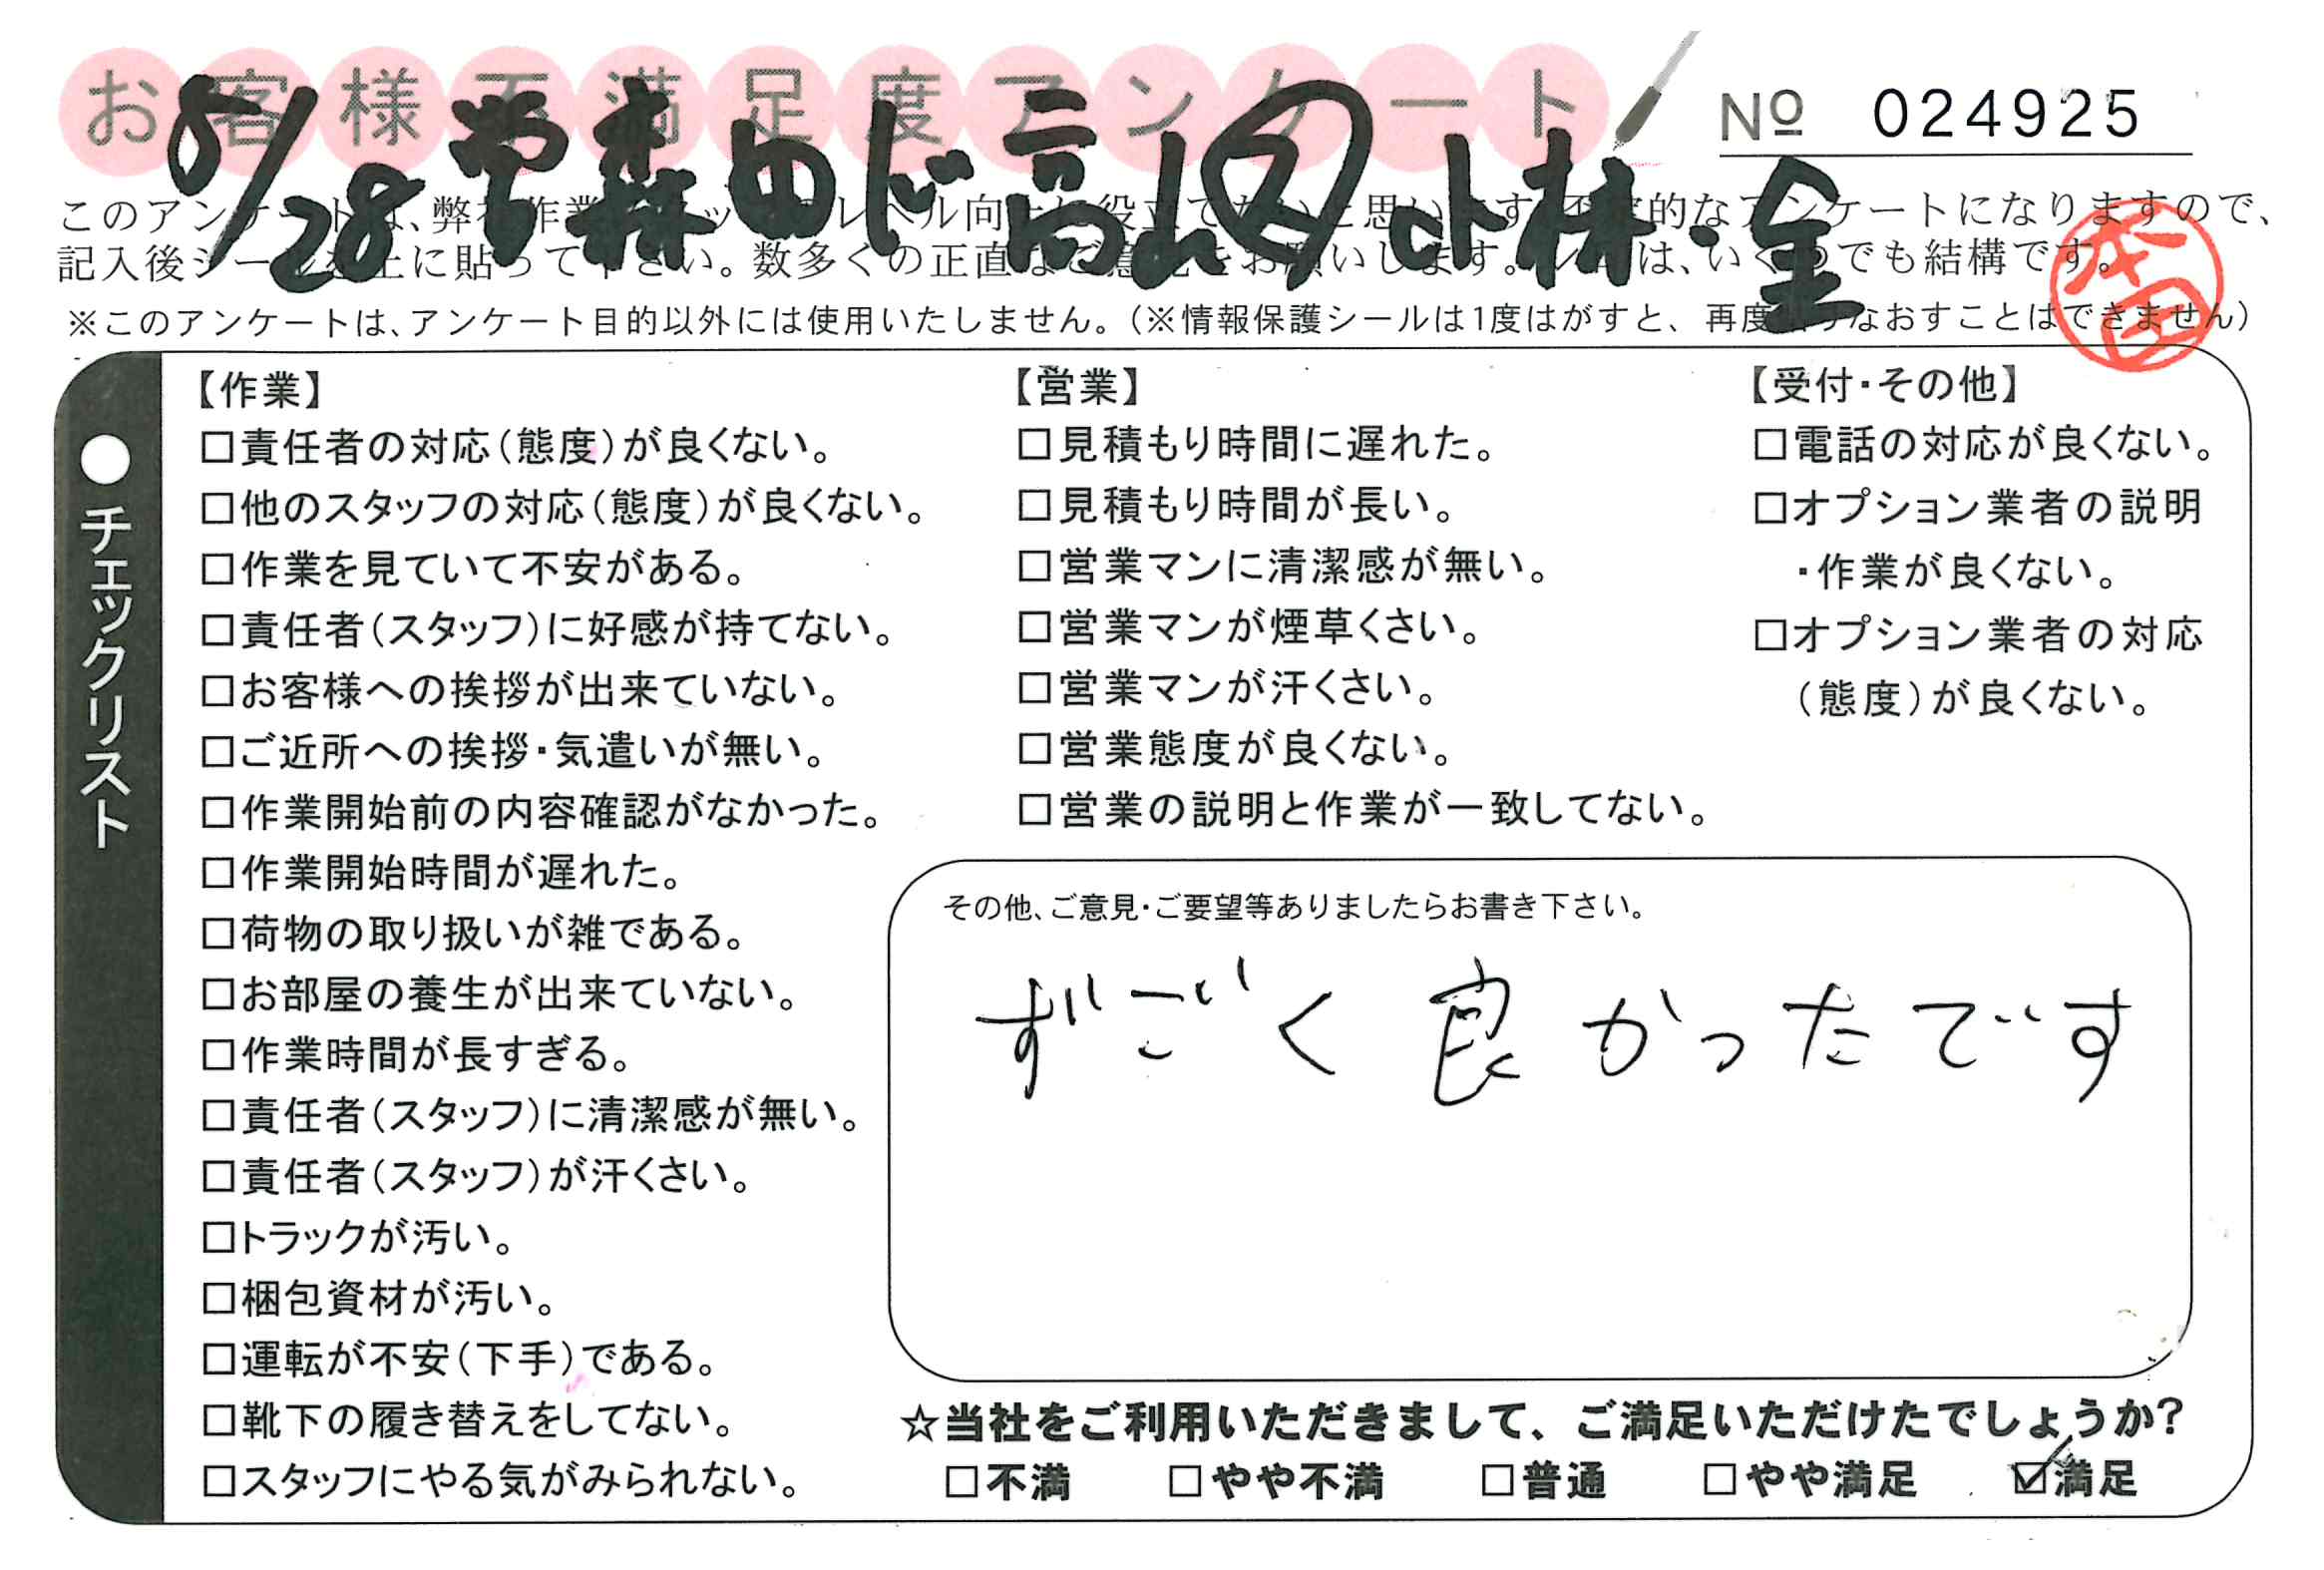 お客様不満足度アンケート
№ 024925
8/28 営森田ド高山 ㋜小林・金
このアンケートは、弊社作業 レベル向 役立てたいと思います 的なアンケートになりますので、
記入後シールを上に貼って下さい。数多くの正直なご意見をお願いします。 は、いくつでも結構です。
※このアンケートは、アンケート目的以外には使用いたしません。(※情報保護シールは1度はがすと、再度貼りなおすことはできません)
本田
●チェックリスト
【作業】
□責任者の対応(態度)が良くない。
□他のスタッフの対応(態度)が良くない。
□作業を見ていて不安がある。
□責任者(スタッフ)に好感が持てない。
□お客様への挨拶が出来ていない。
□ご近所への挨拶・気遣いが無い。
□作業開始前の内容確認がなかった。
□作業開始時間が遅れた。
□荷物の取り扱いが雑である。
□お部屋の養生が出来ていない。
□作業時間が長すぎる。
□責任者(スタッフ)に清潔感が無い。
□責任者(スタッフ)が汗くさい。
□トラックが汚い。
□梱包資材が汚い。
□運転が不安(下手)である。
□靴下の履き替えをしてない。
□スタッフにやる気がみられない。
【営業】
□見積もり時間に遅れた。
□見積もり時間が長い。
□営業マンに清潔感が無い。
□営業マンが煙草くさい。
□営業マンが汗くさい。
□営業態度が良くない。
□営業の説明と作業が一致してない。
【受付・その他】
□電話の対応が良くない。
□オプション業者の説明
・作業が良くない。
□オプション業者の対応
(態度)が良くない。
その他、ご意見・ご要望等ありましたらお書き下さい。
すごく良かったです
☆当社をご利用いただきまして、ご満足いただけたでしょうか?
□不満 □やや不満 □普通 □やや満足 ☑満足